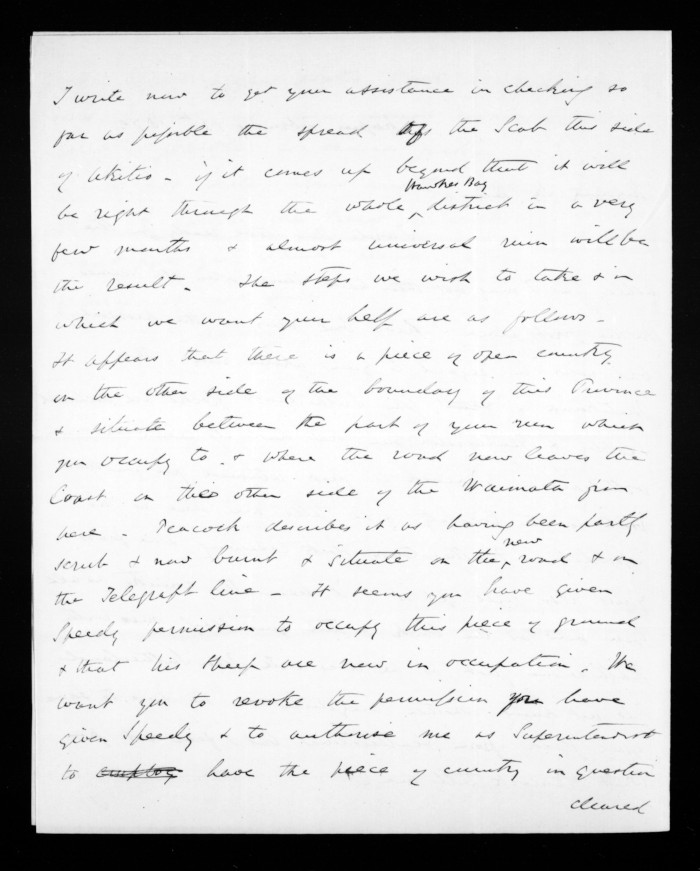 I write now to get your assistance in checking so
far as possible the spread of the Scab this side
of Akitio - if it comes up beyond that it will
Hawkes Bay
be right through the whole district in a very
few months & almost universal ruin will be
the result - The steps we wish to take & in
which we want your help are as follows -
It appears that there is a piece of open country
on the other side of the boundary of this Province
& situate between the part of your run which
you occupy to & where the road now leaves the
Coast on the other side of the Waimata from
here - Peacock describes it as having been partly
new
scrub & now burnt & situate on the road & on
the Telegraph line - It seems you have given
Speedy permission to occupy this piece of ground
& that his sheep are now in occupation. We
want you to revoke the permission you have
given Speedy & to authorise me as Superintendent
to have the piece of country in question
cleared